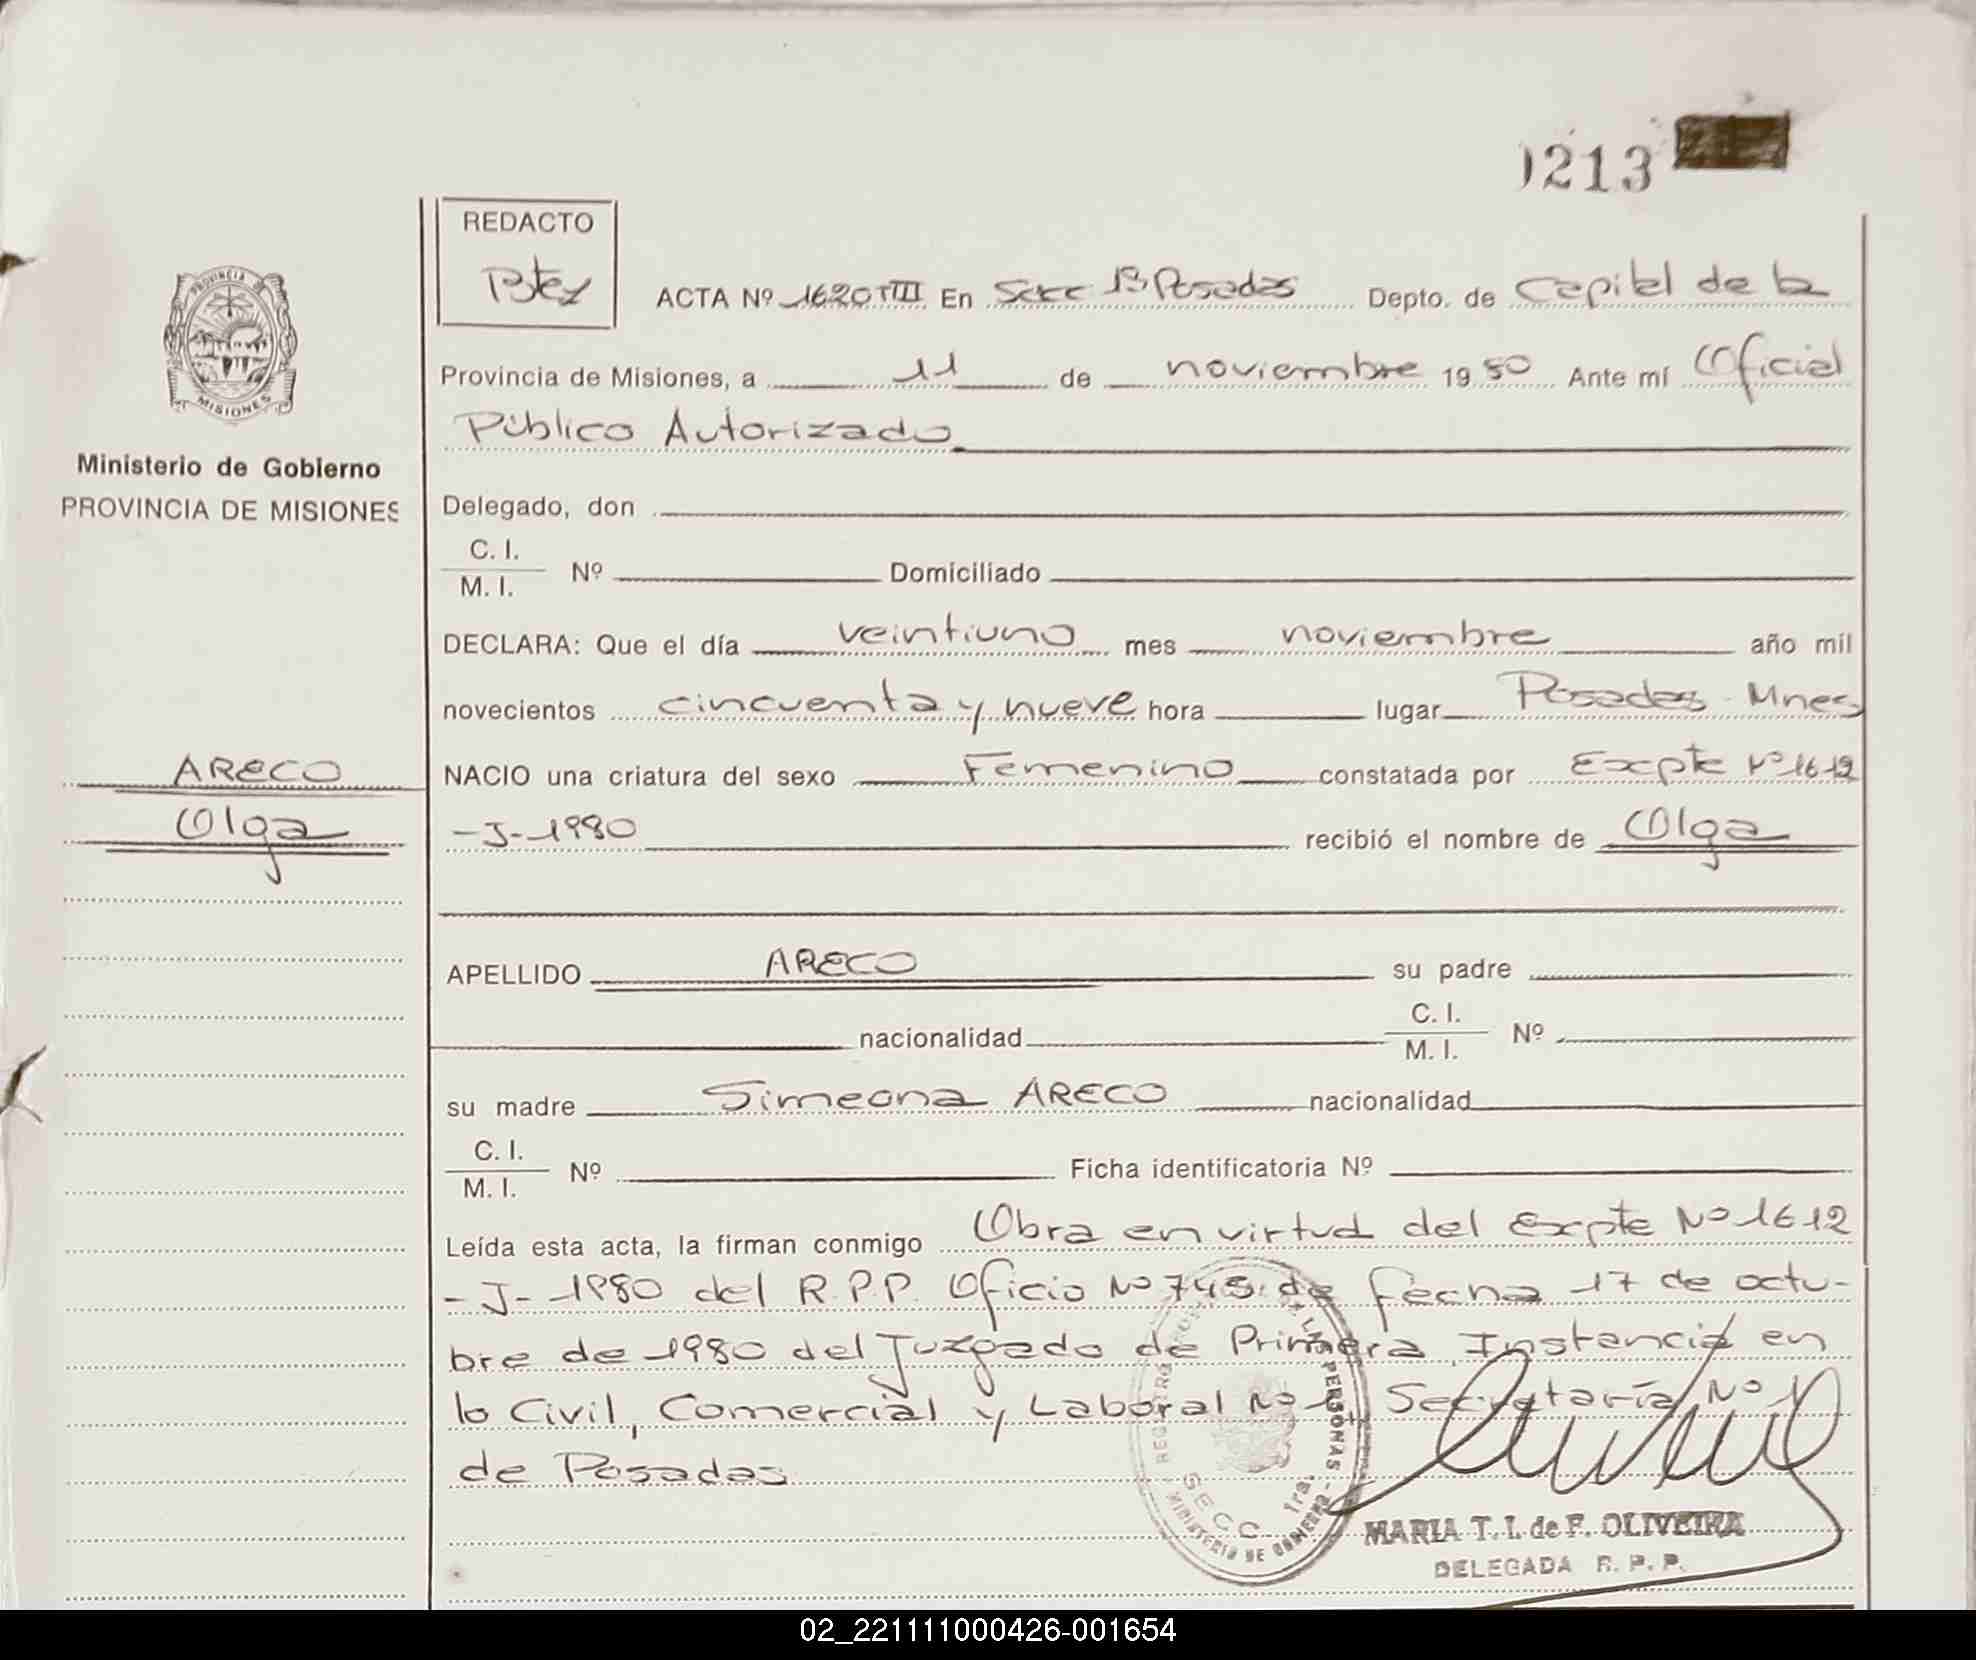 0213
REDACTO
ACTA Nº 1620 TIII En Secc 1ª Posadas Depto. de Capital de la
PROVINCIA DE
MISIONES
Provincia de Misiones, a 11 de noviembre 1980 Ante mí Oficial
Público Autorizado
Ministerio de Gobierno
PROVINCIA DE MISIONES
Delegado, don
C. I.
M. I. Nº Domiciliado
DECLARA: Que el día veintiuno mes noviembre año mil
novecientos cincuenta y nueve hora lugar Posadas - Mnes
ARECO
NACIO una criatura del sexo Femenino constatada por Expte Nº 1612
Olga
-J-1980 recibió el nombre de Olga
APELLIDO ARECO su padre
nacionalidad C. I.
M. I. Nº
su madre Simeona ARECO nacionalidad
C. I.
M. I. Nº Ficha identificatoria Nº
Leída esta acta, la firman conmigo Obra en virtud del Expte Nº 1612
-J-1980 del R.P.P. Oficio Nº 745 de fecha 17 de octu-
bre de 1980 del Juzgado de Primera Instancia en
lo Civil, Comercial y Laboral Nº 1 Secretaría Nº 1
de Posadas
LAS PERSONAS
SECC. 1ra.
MINISTERIO DE GOBIERNO
MARIA T. I. de F. OLIVEIRA
DELEGADA R. P. P.
02_221111000426-001654